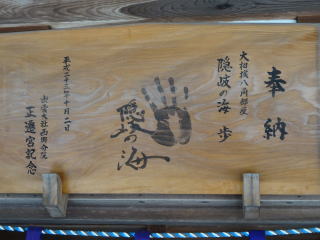 奉納
大相撲八角部屋
隠岐の海 歩
隠岐の海
平成二十三年十月二日
出雲大社西郷分院
正遷宮記念